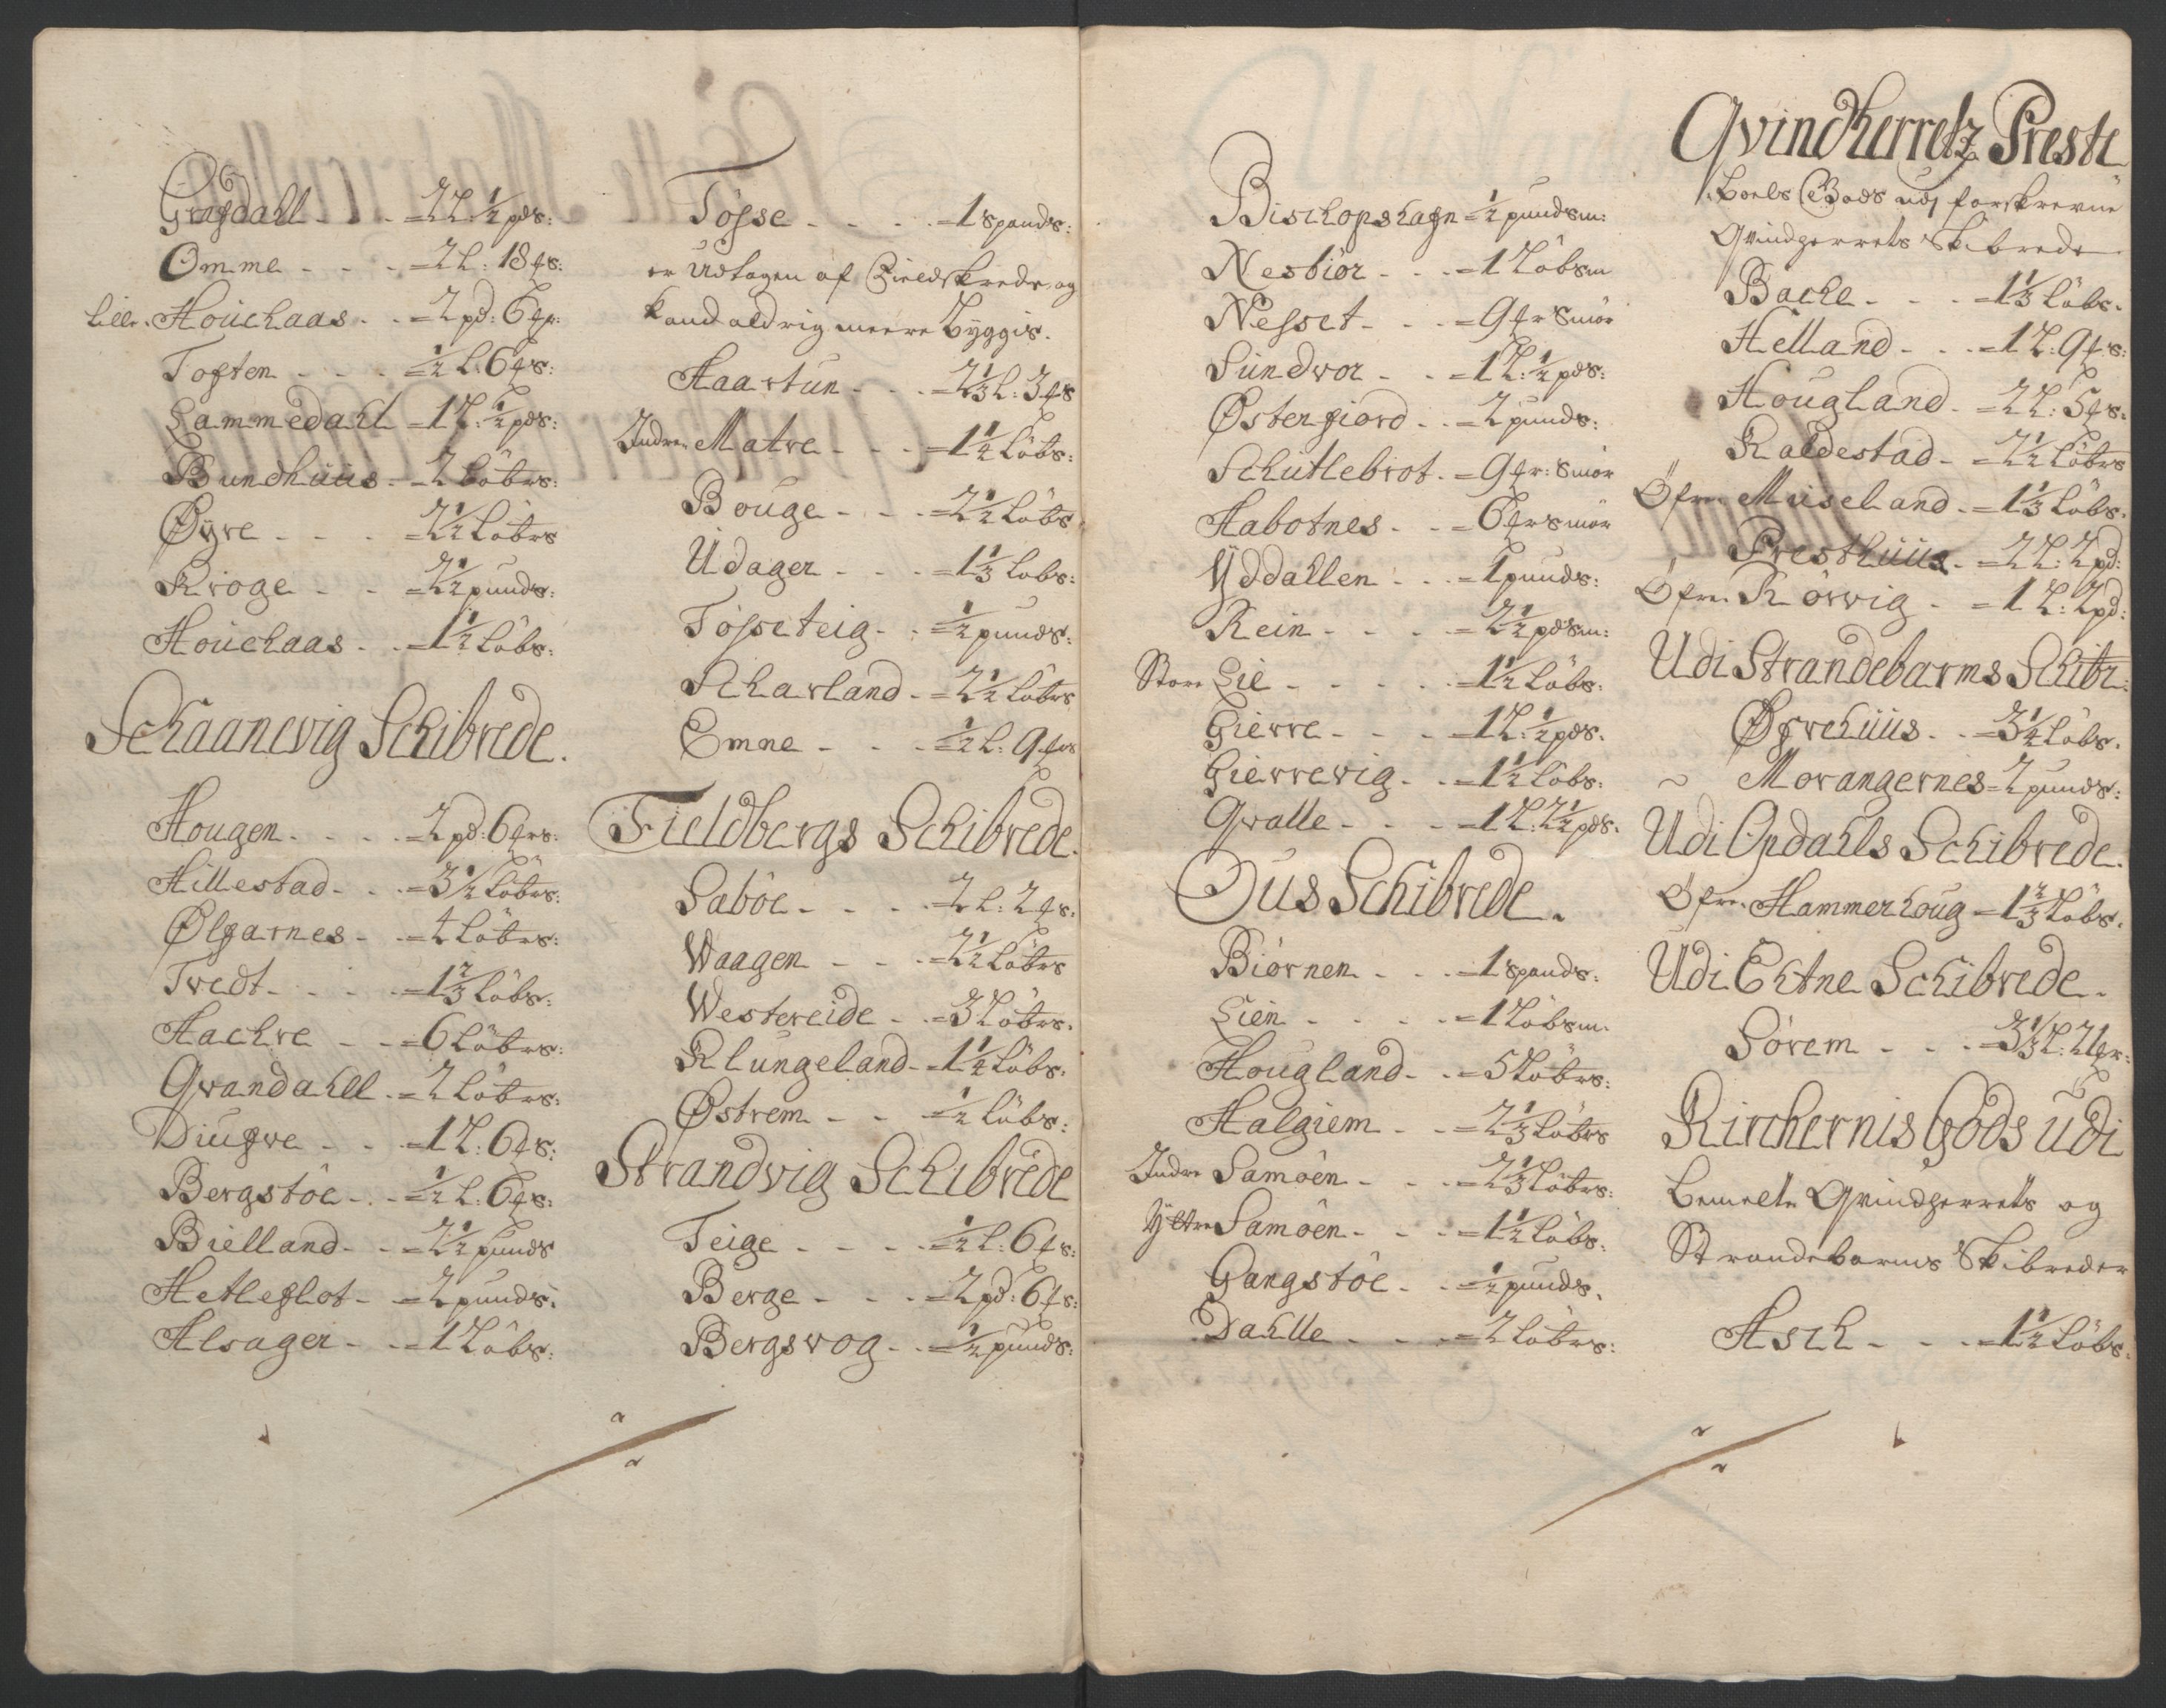 Gragdahl - - - 2 L: ½ pds:
Omme - - - 2 L: 18 ꝉs:
Lille Houchaas - - 2 pd: 6 ꝉr:
Toften - - - ½ L 6 ꝉs:
Lammedahl - 1 L: ½ pds:
Bundhuus - 2 Löbrs:
Øyre - - - 2½ Löbrs
Kroge - - 2½ punds:
Houchaas - - 1½ Löbs:
Schaanevig Schibrede.
Hougen - - - 2 pd: 6 ꝉrs:
Hillestad - - 3½ Löbrs:
Ølgarnes - - 4 Löbrs:
Tvedt - - - 1⅔ Löbs:
Aachre - - 6 Löbrs:
Qvandahll - 2 Löbrs:
Diugve - - 1 L: 6 ꝉs:
Bergstöe - - ½ L: 6 ꝉs:
Bielland - - 2½ punds
Hetleflot - 2 punds:
Alsager - - 1 Löbs:
Tøsse - - - 1 spands:
er Udtagen af Fieldskrede, og
kand aldrig meere Byggis.
Haartun - - - 2⅓ L: 3 ꝉs
Indre Matre - - - 1¼ Löbs:
Bouge - - - 2½ Löbs
Udager - - - 1⅓ Löbs:
Tösseteig - - ½ punds:
Scharland - 2½ Löbrs
Emne - - - ½ L: 9 ꝉrs
Fieldbergs Schibrede.
Saböe - - - 2 L: 2 ꝉs:
Waagen - - - 2½ Löbrs
Westereide - - 3 Löbrs.
Klungeland - 1¼ Löbs.
Østrem - - ½ Löbs:
Strandvig Schibrede
Teige - - - - ½ L: 6 ꝉs:
Berge - - - 2 pd: 6 ꝉs:
Bergsvog - - ½ punds:
Bischopshagn - ½ pundsm:
Nesbiör - - - 1 Löbsm
Nesset - - - 9 ꝉr Smör
Sundvor - - 1 L: ½ pds:
Østengiord - - 2 punds:
Schutlebrot - 9 ꝉr: Smör
Habotnes - - 6 ꝉr Smör
Yddallen - - 1 punds:
Rein - - - - 2½ pdsm:
Store Lie - - - - - 1½ Löbs:
Gierre - - - 1 L: ½ pds.
Gierrevig - - 1½ Löbs:
Qvalle - - - 1 L: 2½ pds.
Ous Schibrede.
Biörnen - - - 1 spands:
Lien - - - - 1 Löbsm.
Hougland - - 5 Löbrs:
Halgiem - - 2⅓ Löbrs
Indre Samöen - - - 2⅓ Löbrs:
Yttre Samöen - - - 1½ Löbs.
Gangstöe - - ½ punds.
Dahlle - - - 2 Löbrs:
Qvindherretz Preste
Boels Gods udj forskrevne
Qvindherrets Skibrede
Bache - - - 1⅓ Löbs.
Helland - - - 1 L: 9 ꝉs:
Hougland - 2 L: 5 ꝉs.
Kaldestad - 2½ Löbrs
Öfre Museland - 1⅓ Löbs.
Presthuus - 2 L: 2 pd:
Öfre Rörvig - 1 L: 2 pd:
Udi Strandebarms Schibr:
Øfrehuus - - 3¼ Löbs.
~ Morangernes - 2 punds:
Udi Opdahls Schibrede.
Öfre Hammerhoug - 1⅔ Löbs.
Udi Ehtne Schibrede.
Sörem - - - 3⅓ L: 21 ꝉr:
Kirchernis Gods udi
bemelte Qvindherrets og
Strandebarms Skibreder
Asch - - - 1½ Löbs: